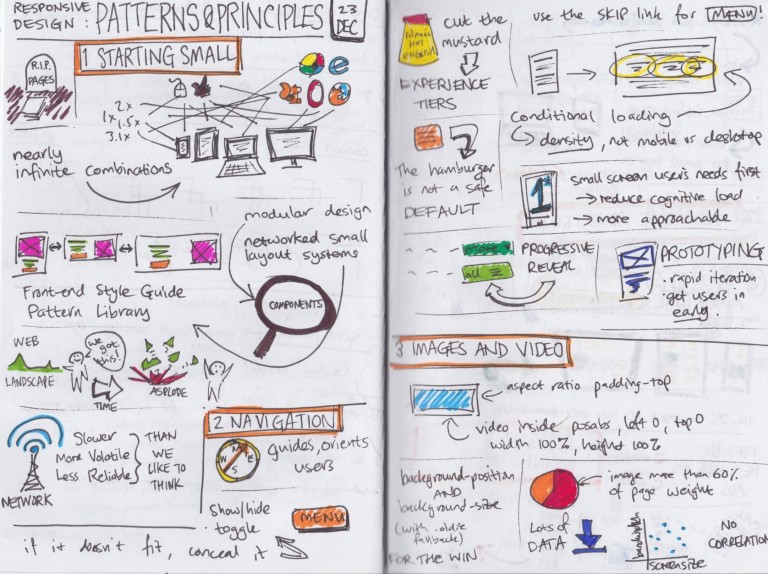 RESPONSIVE
DESIGN:
PATTERNS & PRINCIPLES
23
DEC
R.I.P.
PAGES
1 STARTING SMALL
2x
1x
1.5x
3.1x
nearly
infinite combinations
modular design
networked small
layout systems
COMPONENTS
Front-end Style Guide
Pattern Library
WEB
LANDSCAPE
We got this!
TIME
ASPLODE
NETWORK
Slower
More Volatile
Less Reliable
THAN
WE
LIKE TO
THINK
2 NAVIGATION
N
E
S
W
guides, orients
users
Show/hide
toggle
MENU
if it doesn't fit, conceal it
cut the
mustard
EXPERIENCE
TIERS
The hamburger
is not a safe
DEFAULT
use the SKIP link for MENU!
conditional loading
density, not mobile vs desktop
1st
small screen users needs first
→ reduce cognitive load
→ more approachable
more
all
PROGRESSIVE
REVEAL
PROTOTYPING
· rapid iteration
· get users in
early.
3 IMAGES AND VIDEO
aspect ratio padding-top
video inside posabs, left 0, top 0
width 100%, height 100%
background-position
AND
background-size
(with .oldie
fallback)
FOR THE WIN
image more than 60%
of page weight
Lots of
DATA
bandwidth
screensize
NO
CORRELATION